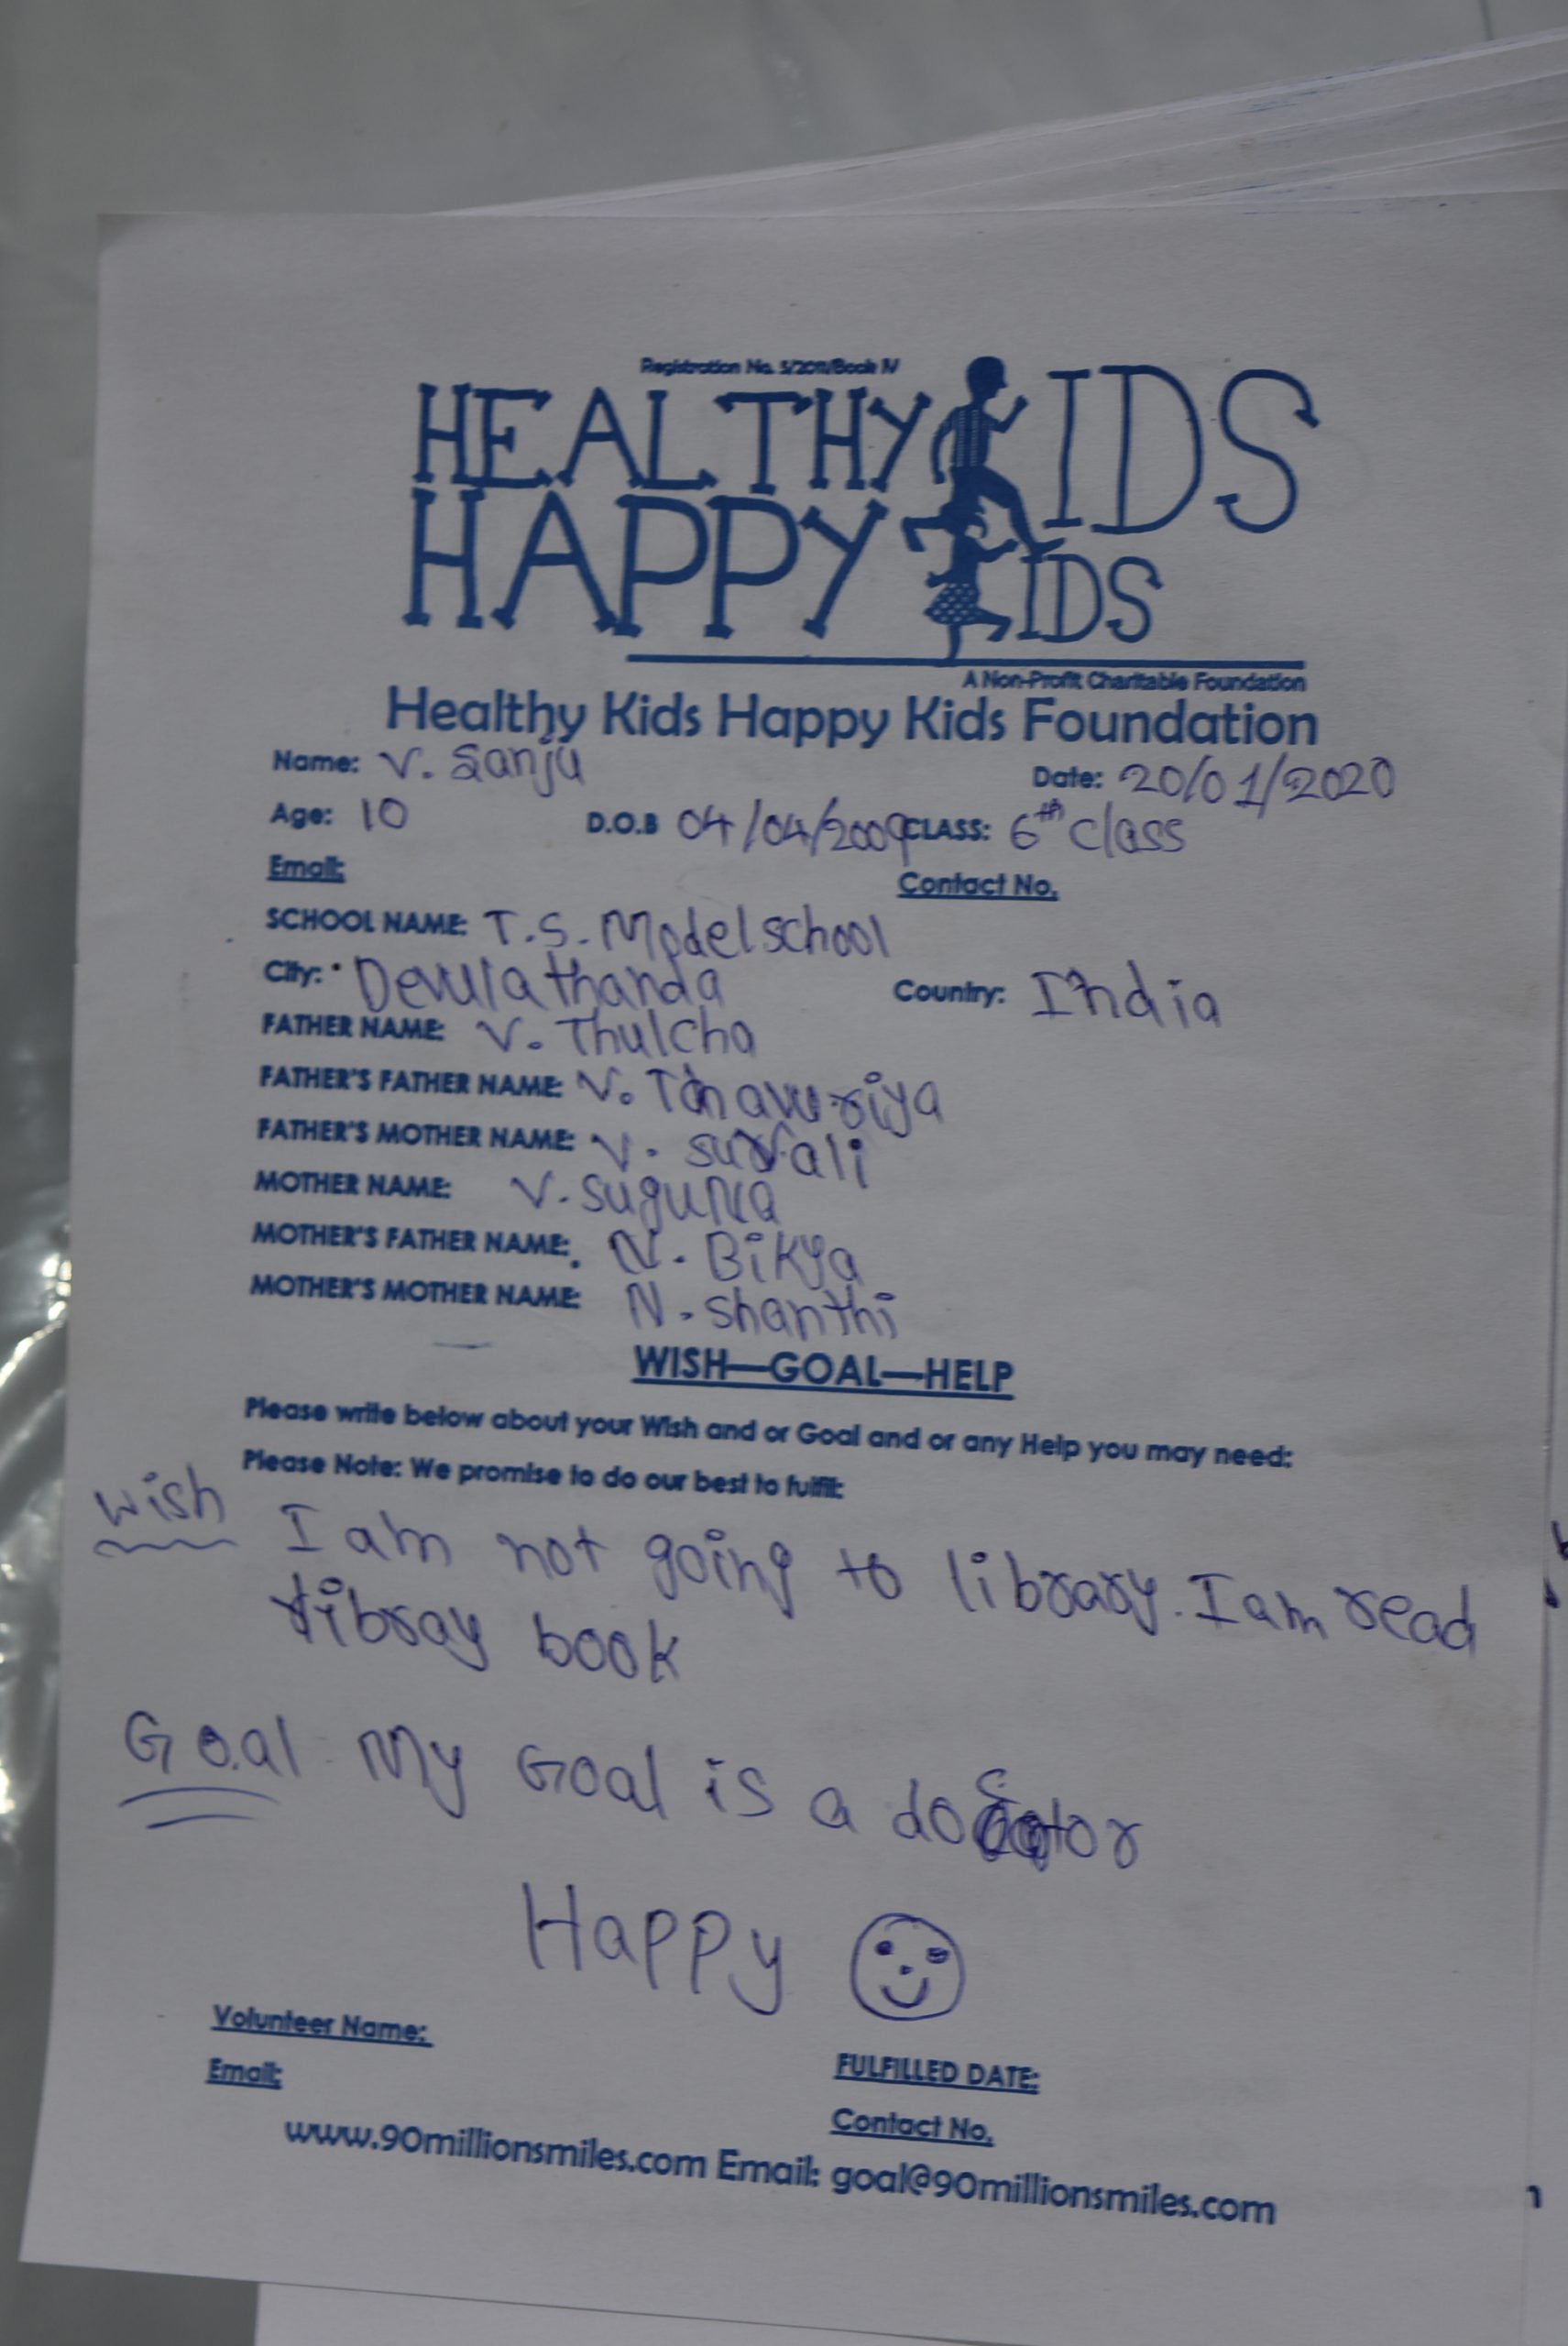 Registration No. 5/2011/Book IV
HEALTHY KIDS
HAPPY KIDS
A Non-Profit Charitable Foundation
Healthy Kids Happy Kids Foundation
Name: V. Sanju Date: 20/01/2020
Age: 10 D.O.B 04/04/2009 CLASS: 6th class
Email: Contact No.
SCHOOL NAME: T.S. Model school
City: Devula thanda Country: India
FATHER NAME: V. Thulcha
FATHER'S FATHER NAME: V.
FATHER'S MOTHER NAME: V.
MOTHER NAME: V. suguna
MOTHER'S FATHER NAME: N. Bikya
MOTHER'S MOTHER NAME: N. shanthi
WISH—GOAL—HELP
Please write below about your Wish and or Goal and or any Help you may need:
Please Note: We promise to do our best to fulfill:
Wish I am not going to library. I am read
libray book
Goal My Goal is a doctor
Happy
Volunteer Name: FULFILLED DATE:
Email: Contact No.
www.90millionsmiles.com Email: goal@90millionsmiles.com